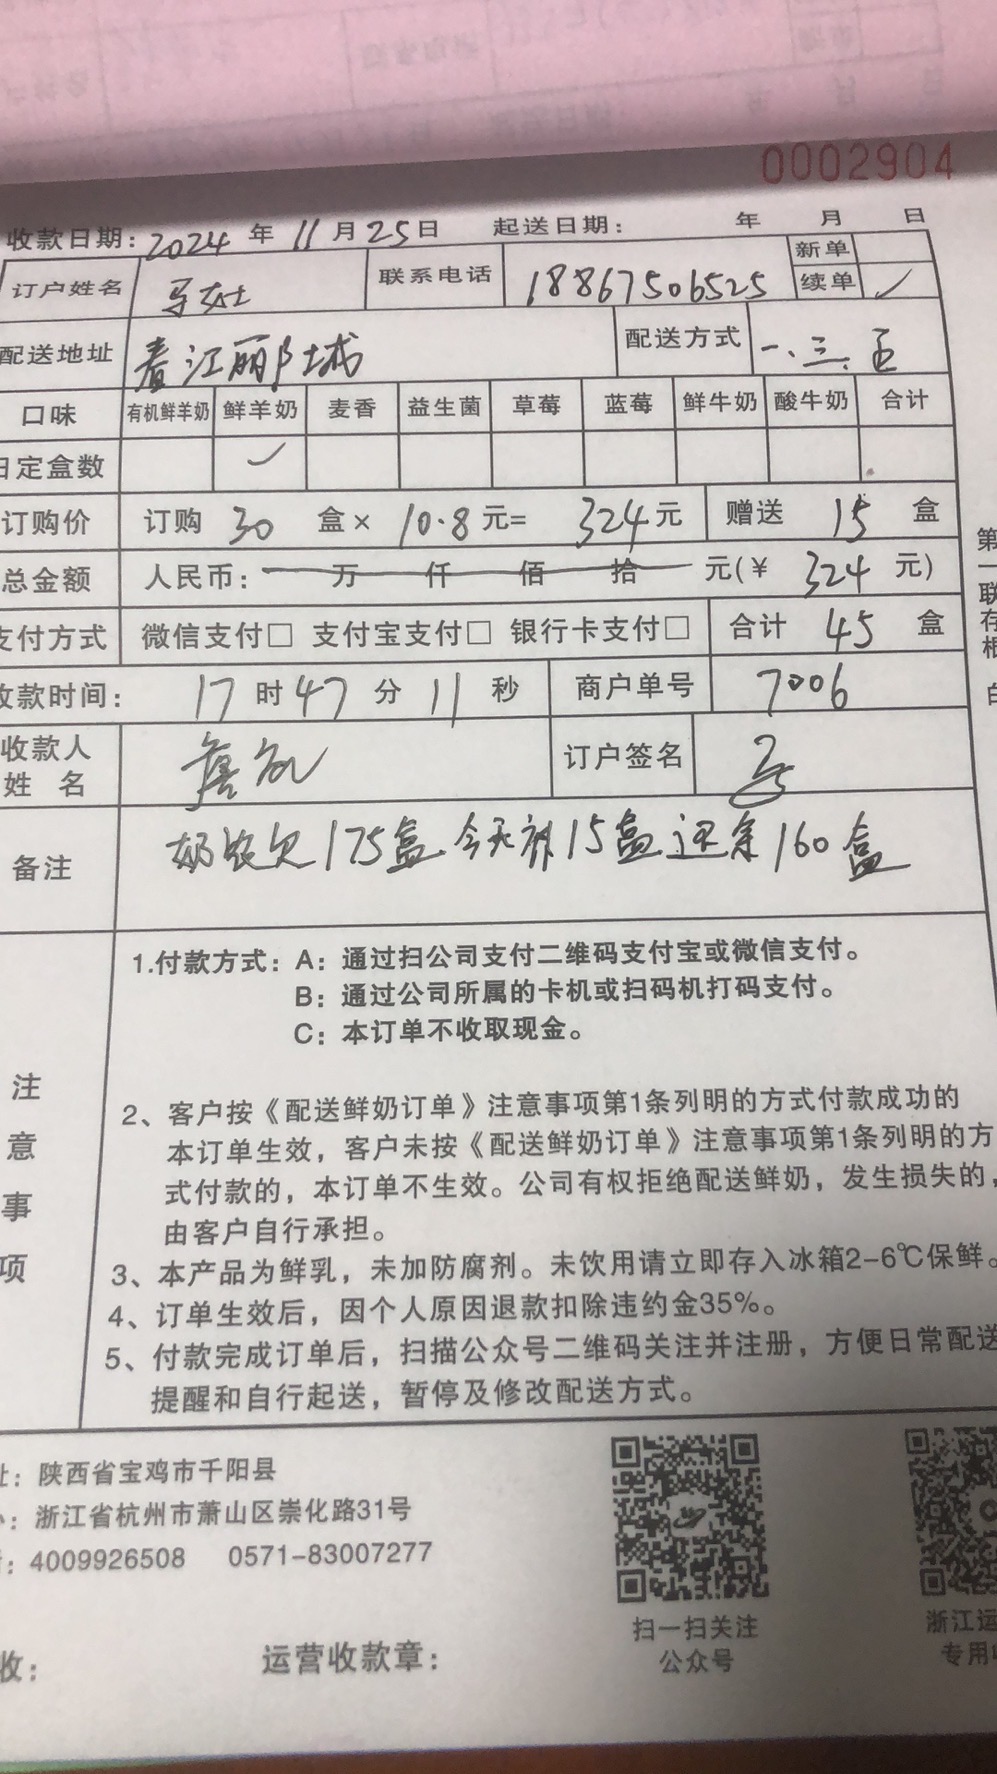 0002904
收款日期: 2024 年 11 月 25 日 起送日期: 年 月 日
订户姓名 马女士 联系电话 18867506525 新单
续单 ✓
配送地址 春江郦城 配送方式 一、三、五
口味 有机鲜羊奶 鲜羊奶 麦香 益生菌 草莓 蓝莓 鲜牛奶 酸牛奶 合计
日定盒数 ✓
订购价 订购 30 盒× 10.8 元= 324 元 赠送 15 盒
总金额 人民币: 万 仟 佰 拾 元(¥ 324 元)
支付方式 微信支付□ 支付宝支付□ 银行卡支付□ 合计 45 盒
收款时间: 17 时 47 分 11 秒 商户单号 7006
收款人
姓 名 订户签名
备注 欠175盒 今天补15盒 还余160盒
第一联存根
注意事项
1.付款方式: A: 通过扫公司支付二维码支付宝或微信支付。
B: 通过公司所属的卡机或扫码机打码支付。
C: 本订单不收取现金。
2、客户按《配送鲜奶订单》注意事项第1条列明的方式付款成功的
本订单生效，客户未按《配送鲜奶订单》注意事项第1条列明的方
式付款的，本订单不生效。公司有权拒绝配送鲜奶，发生损失的，
由客户自行承担。
3、本产品为鲜乳，未加防腐剂。未饮用请立即存入冰箱2-6℃保鲜。
4、订单生效后，因个人原因退款扣除违约金35%。
5、付款完成订单后，扫描公众号二维码关注并注册，方便日常配送
提醒和自行起送，暂停及修改配送方式。
址: 陕西省宝鸡市千阳县
: 浙江省杭州市萧山区崇化路31号
: 4009926508 0571-83007277
扫一扫关注
公众号
浙江运
专用收
收: 运营收款章: